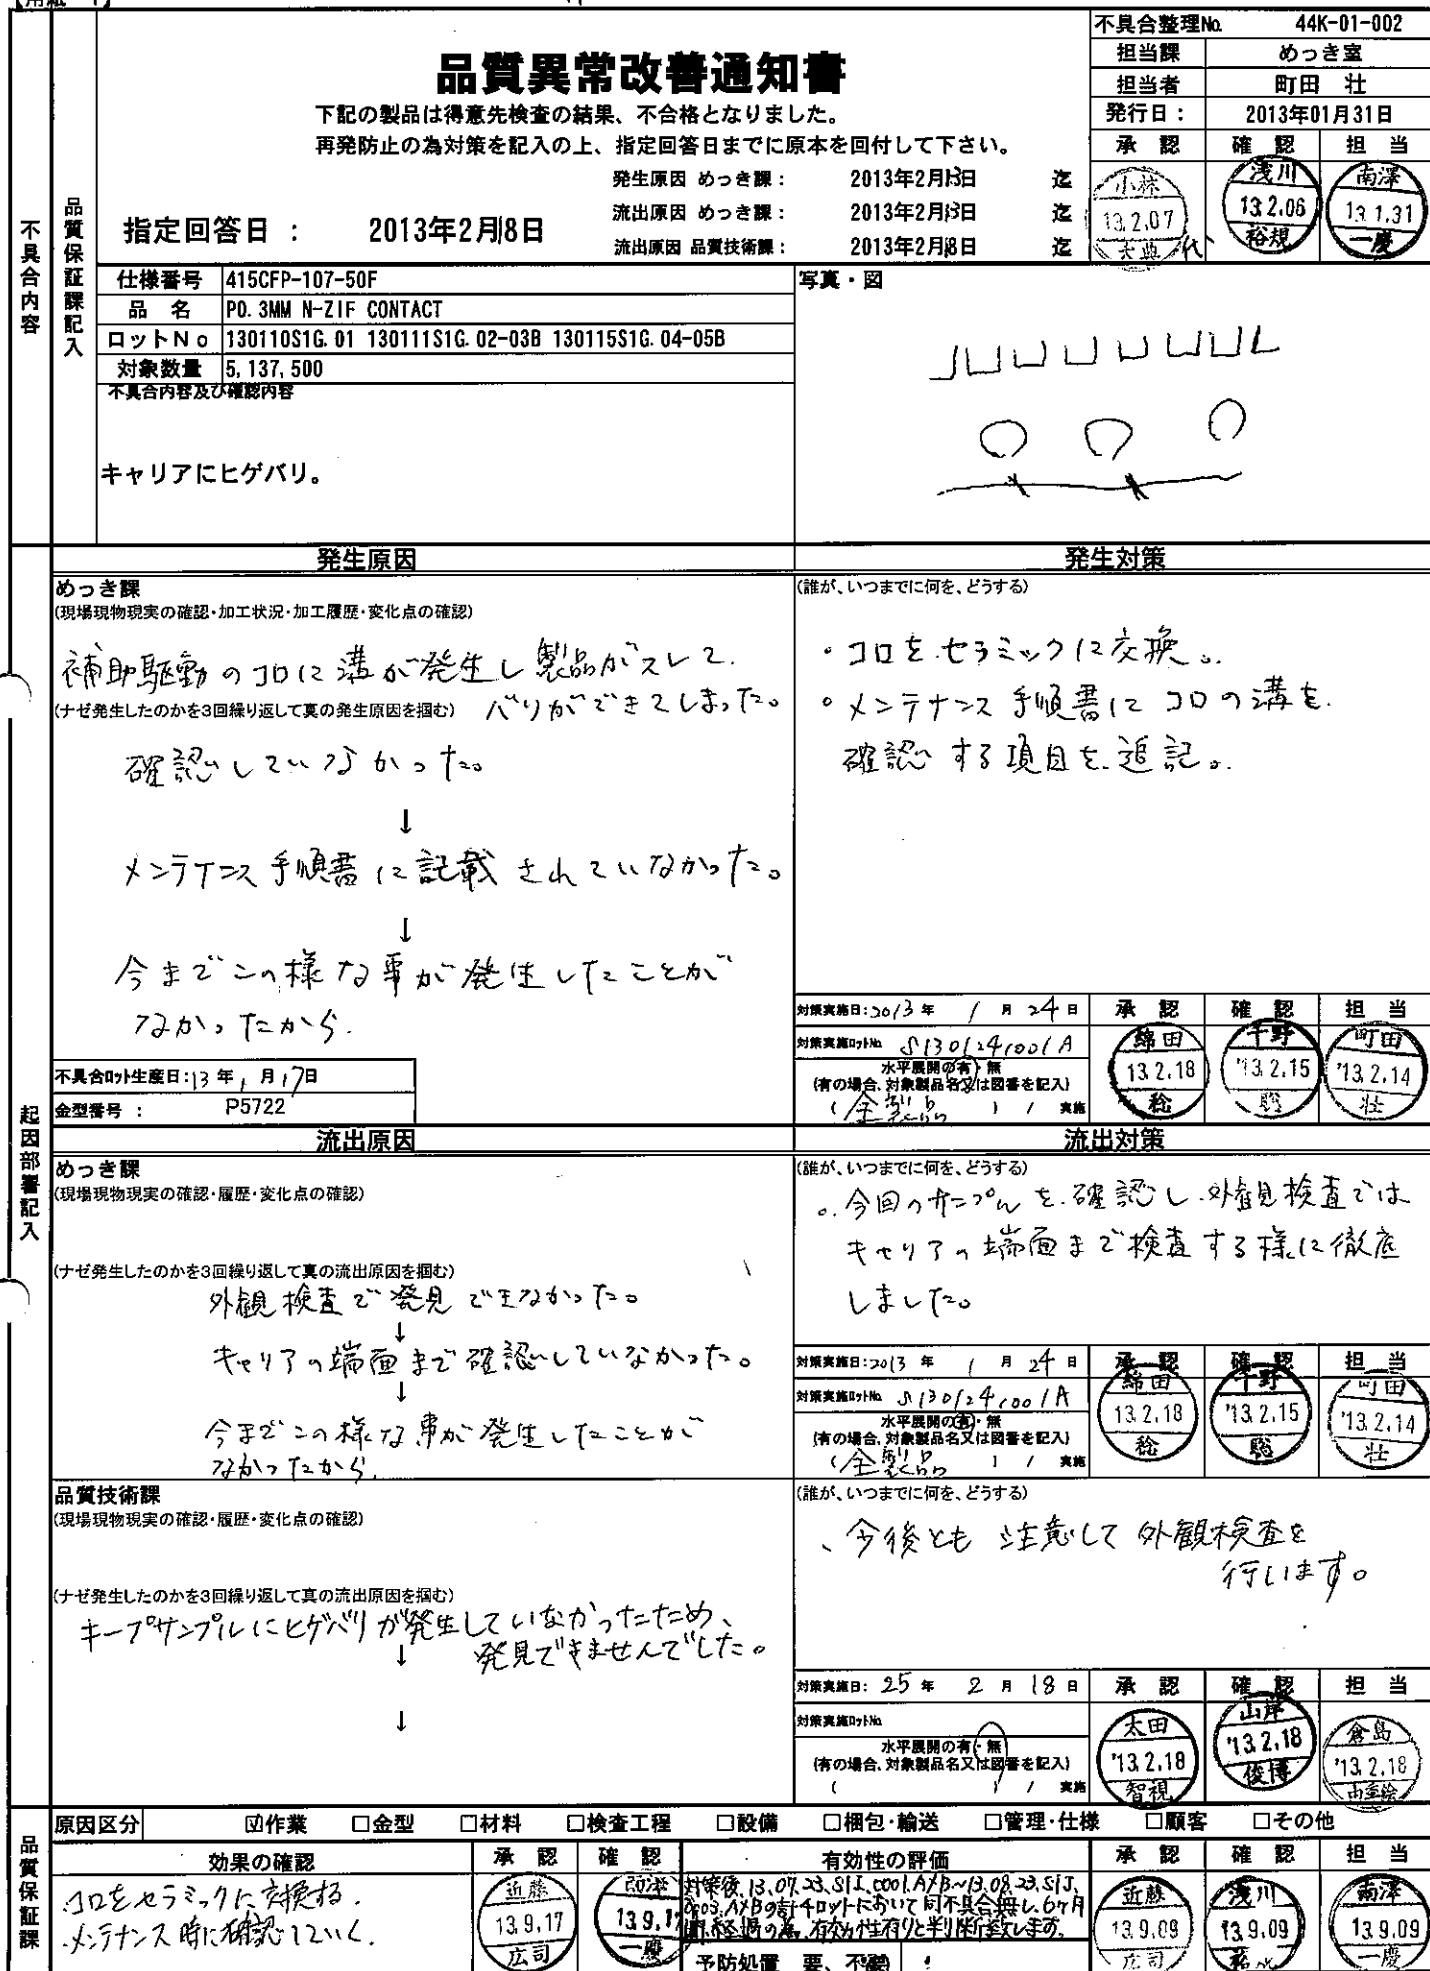 不具合整理No. 44K-01-002
担当課 めっき室
品質異常改善通知書
担当者 町田 壮
下記の製品は得意先検査の結果、不合格となりました。
発行日: 2013年01月31日
再発防止の為対策を記入の上、指定回答日までに原本を回付して下さい。
承認 確認 担当
小林 13.2.07
浅川 13.2.06 裕規
南澤 13.1.31 一慶
発生原因 めっき課: 2013年2月13日 迄
流出原因 めっき課: 2013年2月13日 迄
指定回答日 : 2013年2月18日
流出原因 品質技術課: 2013年2月18日 迄
不具合内容
品質保証課記入
仕様番号 415CFP-107-50F
品名 P0.3MM N-ZIF CONTACT
ロットNo 130110S1G.01 130111S1G.02-03B 130115S1G.04-05B
対象数量 5,137,500
不具合内容及び確認内容
キャリアにヒゲバリ。
写真・図
起因部署記入
発生原因
めっき課
(現場現物現実の確認・加工状況・加工履歴・変化点の確認)
補助駆動のコロに溝が発生し製品がスレて
バリができてしまった。
(ナゼ発生したのかを3回繰り返して真の発生原因を掴む)
確認していなかった。
↓
メンテナンス手順書に記載されていなかった。
↓
今までこの様な事が発生したことが
なかったから.
不具合ロット生産日:13年1月17日
金型番号 : P5722
発生対策
(誰が、いつまでに何を、どうする)
・コロをセラミックに交換。
・メンテナンス手順書にコロの溝を
確認する項目を追記。
対策実施日:2013年 1月24日
対策実施ロットNo. S1301241001A
水平展開の有・無
(有の場合、対象製品名又は図番を記入)
(全製品) / 実施
承認 確認 担当
綿田 13.2.18 稔
千野 '13.2.15 聡
町田 '13.2.14 壮
流出原因
めっき課
(現場現物現実の確認・履歴・変化点の確認)
(ナゼ発生したのかを3回繰り返して真の流出原因を掴む)
外観検査で発見できなかった。
↓
キャリアの端面まで確認していなかった。
↓
今までこの様な事が発生したことが
なかったから.
流出対策
(誰が、いつまでに何を、どうする)
。今回のサンプルを確認し外観検査では
キャリアの端面まで検査する様に徹底
しました。
対策実施日:2013年 1月24日
対策実施ロットNo. S1301241001A
水平展開の有・無
(有の場合、対象製品名又は図番を記入)
(全製品) / 実施
承認 確認 担当
綿田 13.2.18 稔
千野 '13.2.15 聡
町田 '13.2.14 壮
品質技術課
(現場現物現実の確認・履歴・変化点の確認)
(ナゼ発生したのかを3回繰り返して真の流出原因を掴む)
キープサンプルにヒゲバリが発生していなかったため、
発見できませんでした。
↓
↓
(誰が、いつまでに何を、どうする)
、今後とも注意して外観検査を
行います。
対策実施日: 25年 2月18日
対策実施ロットNo.
水平展開の有・無
(有の場合、対象製品名又は図番を記入)
( ) / 実施
承認 確認 担当
太田 '13.2.18 智視
山岸 '13.2.18 俊博
倉島 '13.2.18
品質保証課
原因区分 ☑作業 □金型 □材料 □検査工程 □設備 □梱包・輸送 □管理・仕様 □顧客 □その他
効果の確認
コロをセラミックに交換する.
メンテナンス時に確認していく.
承認 確認
近藤 13.9.17 広司
南澤 13.9.17 一慶
有効性の評価
対策後、13.07.23.S1J.0001.A/B~13.08.23.S1J.
0003.A/Bの計4ロットにおいて同不具合無し、6ヶ月
間経過の為、有効性有りと判断致します。
予防処置 要、不要
承認 確認 担当
近藤 13.9.09 広司
浅川 13.9.09
南澤 13.9.09 一慶